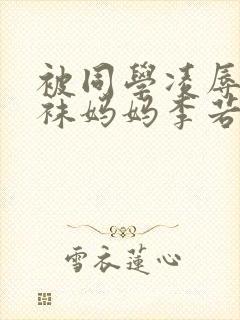 被同學凌辱
袜妈妈李若
雪衣蓮心